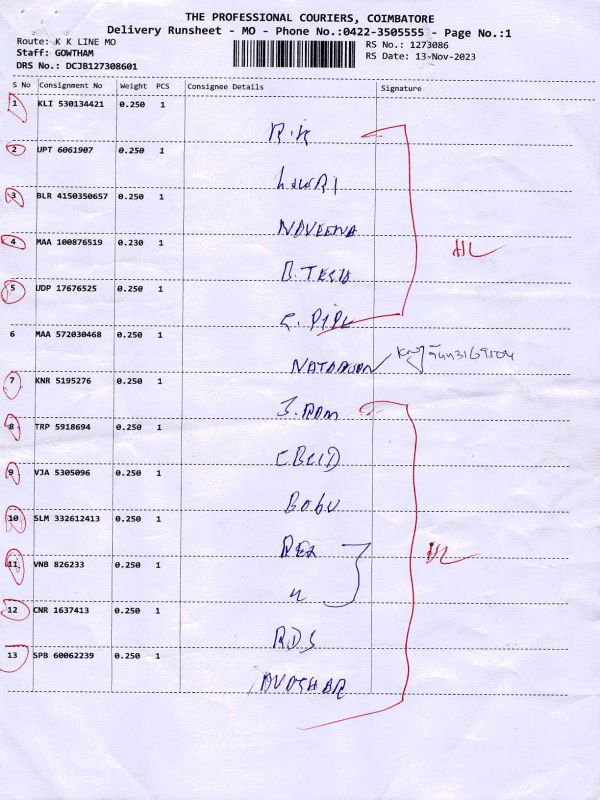 THE PROFESSIONAL COURIERS, COIMBATORE
Delivery Runsheet - MO - Phone No.:0422-3505555 - Page No.:1
Route: K K LINE MO
Staff: GOWTHAM
DRS No.: DCJB127308601
RS No.: 1273086
RS Date: 13-Nov-2023
S No Consignment No Weight PCS Consignee Details Signature
1 KLI 530134421 0.250 1
R.K
2 UPT 6061907 0.250 1
3 BLR 4150350657 0.250 1
NAVEENA
4 MAA 100876519 0.230 1
5 UDP 17676525 0.250 1
6 MAA 572030468 0.250 1
7 KNR 5195276 0.250 1
8 TRP 5918694 0.250 1
9 VJA 5305096 0.250 1
BObu
10 SLM 332612413 0.250 1
11 VNB 826233 0.250 1
12 CNR 1637413 0.250 1
RDS
13 SPB 60062239 0.250 1